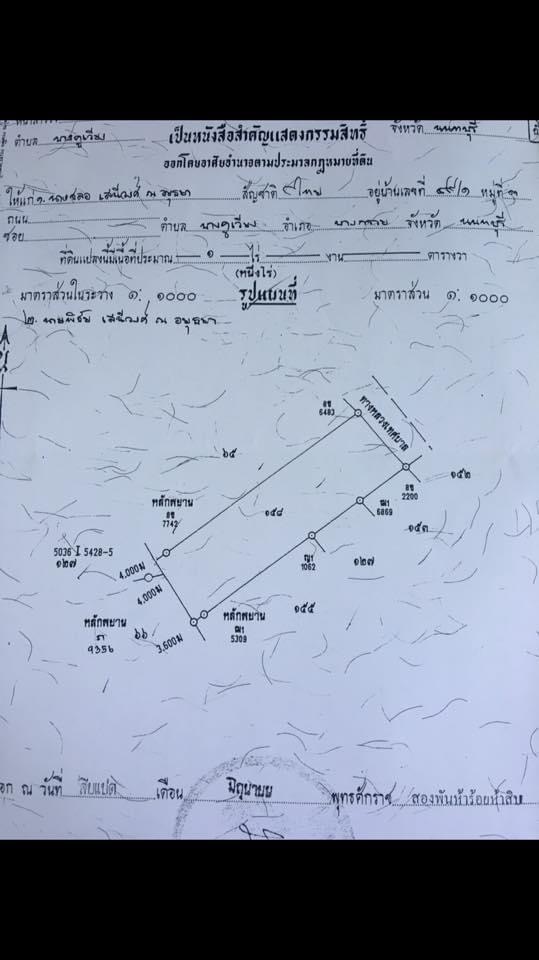 ตำบล บางคูเวียง เป็นหนังสือสำคัญแสดงกรรมสิทธิ์ จังหวัด นนทบุรี
ออกโดยอาศัยอำนาจตามประมวลกฎหมายที่ดิน
ให้แก่ ๑. นางชลอ เสนีวงศ์ ณ อยุธยา สัญชาติ ไทย อยู่บ้านเลขที่ หมู่ที่
ถนน
ซอย ตำบล บางคูเวียง อำเภอ บางกรวย จังหวัด นนทบุรี
ที่ดินแปลงนี้มีเนื้อที่ประมาณ ๑ ไร่ งาน ตารางวา
(หนึ่งไร่)
มาตราส่วนในระวาง ๑: ๑๐๐๐ รูปแผนที่ มาตราส่วน ๑: ๑๐๐๐
๒. นายพิชัย เสนีวงศ์ ณ อยุธยา
ทางหลวงเทศบาล
อช
6483
๖๕
อช
2200
๑๕๒
หลักพยาน
อช
7742
๑๕๘
ฒ1
6869
๑๕๓
5036 I 5428-5
๑๒๗
ญ1
1062
๑๒๗
4.000ม
4.000ม
หลักพยาน
9356
๖๖
3.600ม
หลักพยาน
ฒ1
5309
๑๕๕
อก ณ วันที่ สิบแปด เดือน มิถุนายน พุทธศักราช สองพันห้าร้อยห้าสิบ